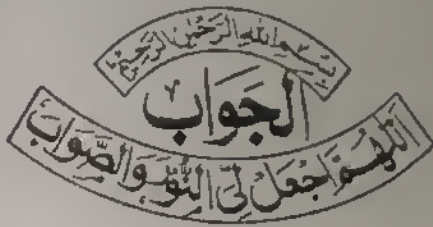 بِسْمِ اللهِ الرَّحْمٰنِ الرَّحِيْمِ
الجَوَاب
اَللّٰهُمَّ اجْعَلْ لِىَ النُّوْرَ وَالصَّوَابَ